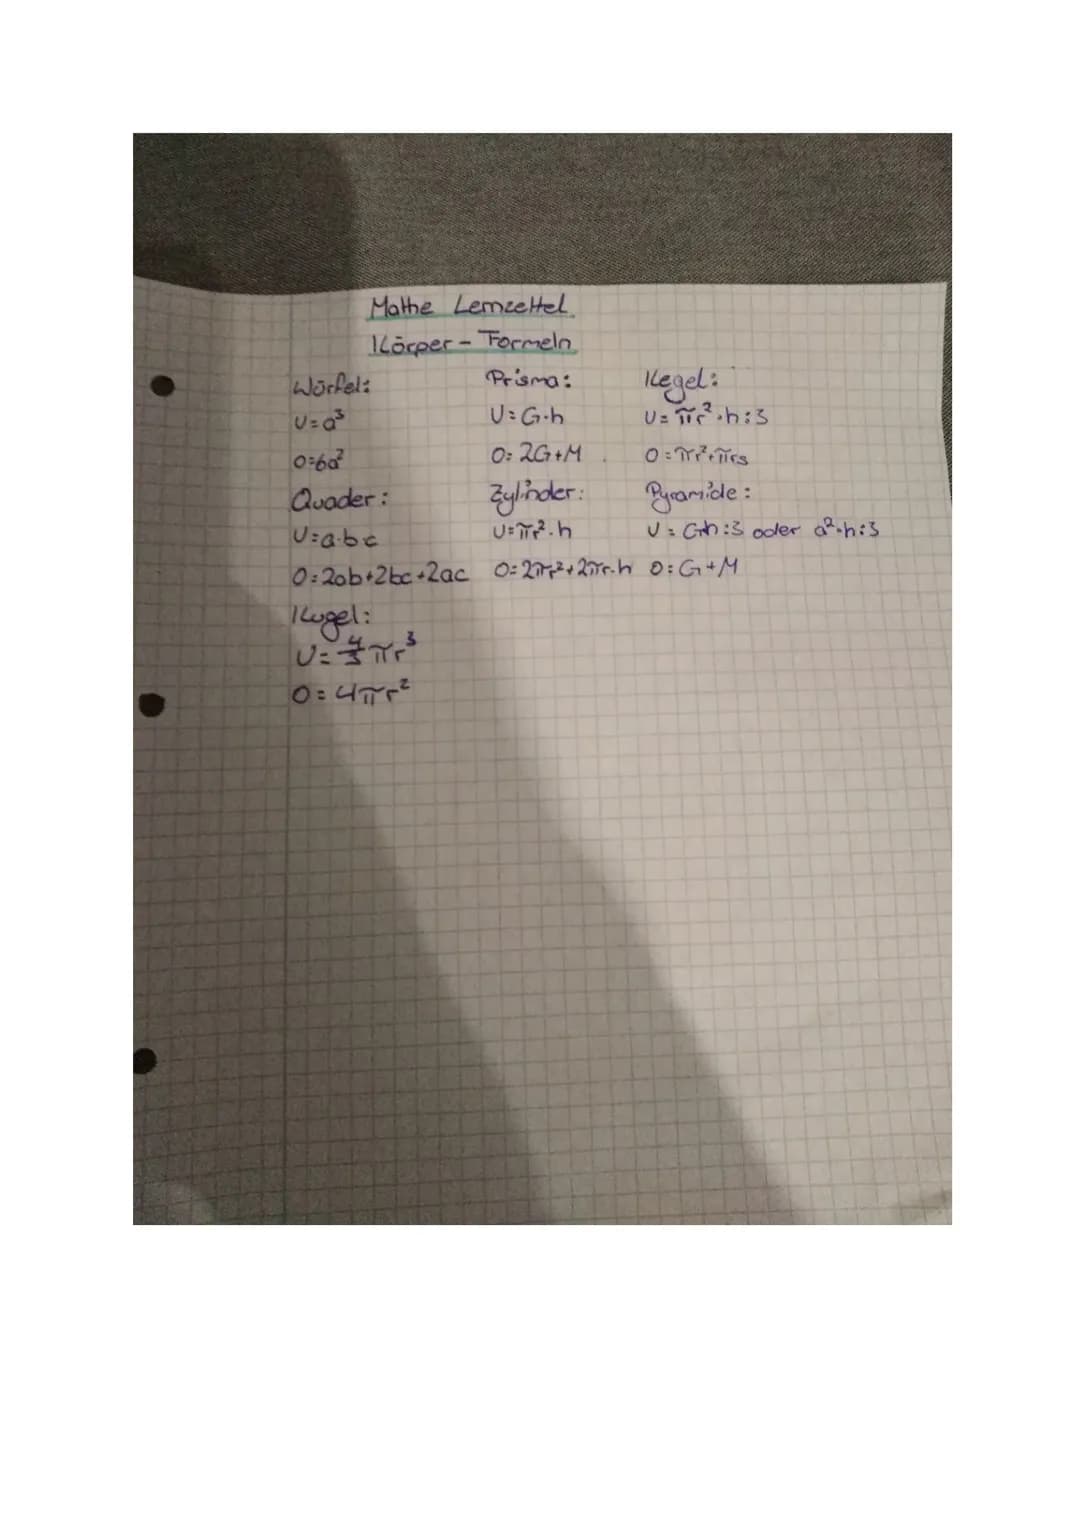 Mathe Lernzettel
Körper - Formeln
Würfel:
V=a³
O=6a²
Quader:
V=a·b·c
O=2ab+2bc+2ac
Kugel:
V=4/3 πr³
O=4πr²
Prisma:
V=G·h
O=2G+M
Zylinder:
V=πr²·h
O=2πr²+2πr·h
Kegel:
V=πr²·h:3
O=πr²+πrs
Pyramide:
V=G·h:3 oder a²·h:3
O=G+M